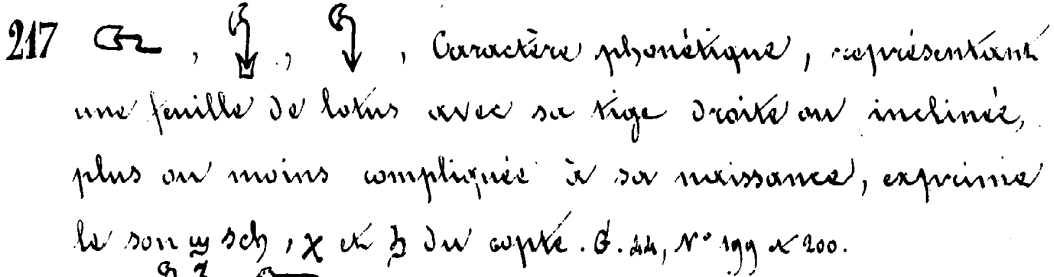 217 , , , Caractère phonétique, représentant
une feuille de lotus avec sa tige droite ou inclinée,
plus ou moins compliquée à sa naissance, exprime
le son ϣ sch, χ et ϧ du copte. G. 44, N° 199 et 200.